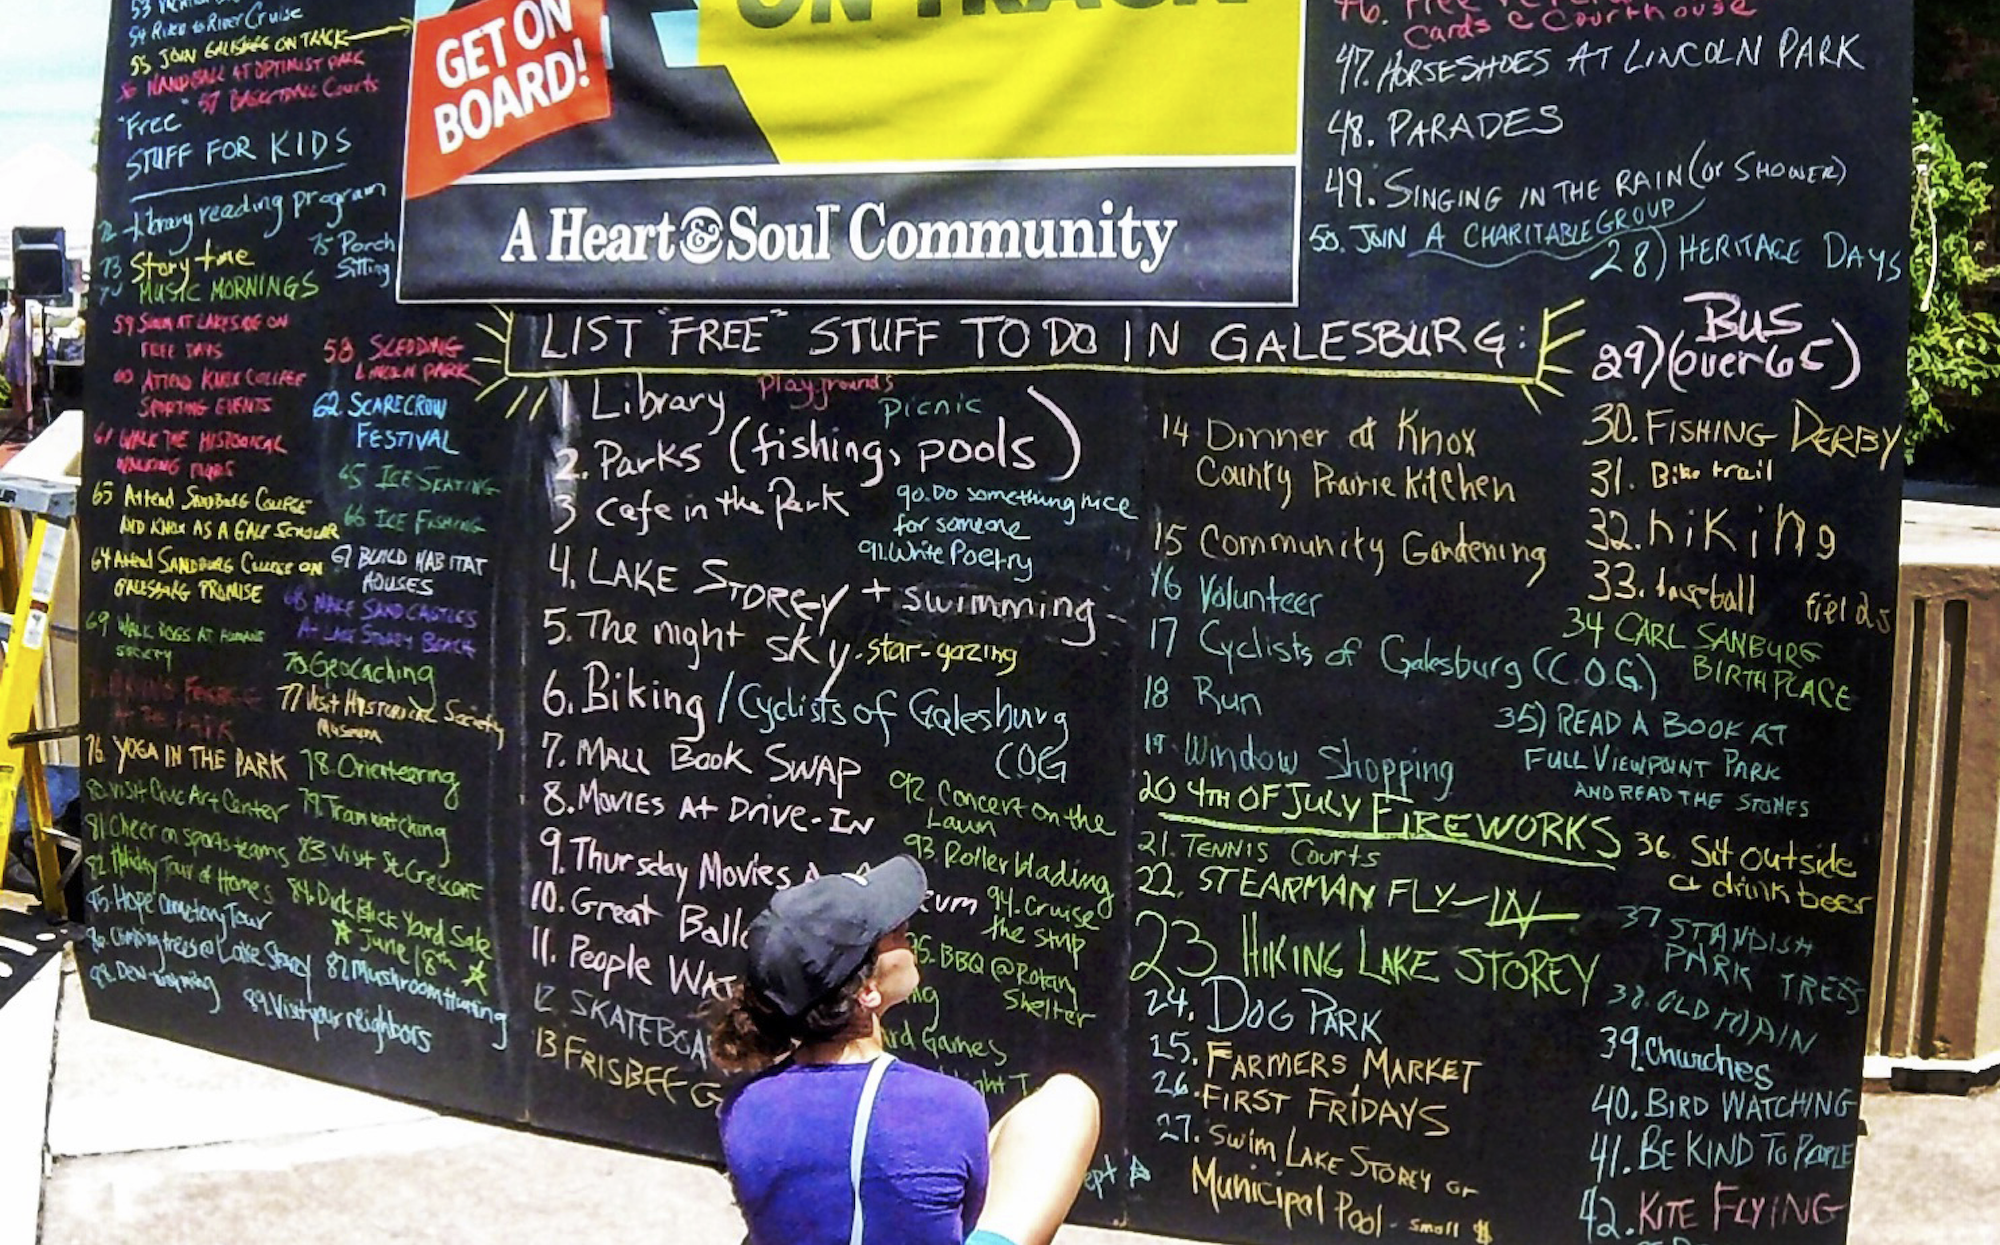 54 Rike to River Cruise
55 JOIN GALESBURG ON TRACK
56 HANDBALL AT OPTIMIST PARK
57 BASKETBALL Courts
"Free"
STUFF FOR KIDS
72 Library reading program
73 Story time
75 Porch
Sitting
74 MUSIC MORNINGS
59 SWIM AT LAKESIDE ON
FREE DAYS
58 SLEDDING
LINCOLN PARK
60 ATTEND KNOX COLLEGE
SPORTING EVENTS
62 SCARECROW
FESTIVAL
61 WALK THE HISTORICAL
WALKING
65 ICE SKATING
65 Attend SANDBURG COLLEGE
AND KNOX AS A GALE SCHOLAR
66 ICE FISHING
64 Attend SANDBURG COLLEGE ON
GALESBURG PROMISE
67 BUILD HABITAT
HOUSES
68 MAKE SAND CASTLES
AT LAKE STOREY BEACH
69 WALK DOGS AT HUMANE
SOCIETY
70 Geocaching
PARK
77 Visit Historical Society
Museum
76 YOGA IN THE PARK
78 Orienteering
80 Visit Civic Art Center
79 Train watching
81 Cheer on sports teams
83 Visit St Crescent
82 Holiday Tour of Homes
84 Dick Blick Yard Sale
June 18th
85 Hope Cemetery Tour
86 Climbing trees @ Lake Storey
87 Mushroom Hunting
88
89 Visit your neighbors
GET ON
BOARD!
ON TRACK
A Heart & Soul™ Community
LIST "FREE" STUFF TO DO IN GALESBURG:
1 Library
playgrounds
picnic
2. Parks (fishing, pools)
3 Cafe in the Park
90. Do something nice
for someone
91. Write Poetry
4. LAKE STOREY + swimming
5. The night sky - star-gazing
6. Biking / Cyclists of Galesburg
COG
7. MALL BOOK SWAP
8. MOVIES AT DRIVE-IN
92 Concert on the
Lawn
9. Thursday Movies
93. Rollerblading
10. Great
94. Cruise
the strip
11. People
95. BBQ @ Rotary
Shelter
12
Games
13 FRISBEE G
14 Dinner at Knox
County Prairie Kitchen
15 Community Gardening
16 Volunteer
17 Cyclists of Galesburg (C.O.G.)
18 Run
19 Window Shopping
20 4TH OF JULY FIREWORKS
21. TENNIS Courts
22. STEARMAN FLY-IN
23 HIKING LAKE STOREY
24. DOG PARK
25. FARMERS MARKET
26. FIRST FRIDAYS
27. Swim LAKE STOREY or
Municipal Pool - small $
46. Free
Cards @ Courthouse
47. HORSESHOES AT LINCOLN PARK
48. PARADES
49. SINGING IN THE RAIN (or SHOWER)
50. JOIN A CHARITABLE GROUP
28) HERITAGE DAYS
29) BUS
(over 65)
30. FISHING DERBY
31. Bike trail
32. hiking
33. baseball fields
34 CARL SANBURG
BIRTHPLACE
35) READ A BOOK AT
FULL VIEWPOINT PARK
AND READ THE STONES
36. Sit outside
a drink beer
37 STANDISH
PARK TREES
38. OLD MAIN
39. Churches
40. BIRD WATCHING
41. BE KIND TO PEOPLE
42. KITE FLYING